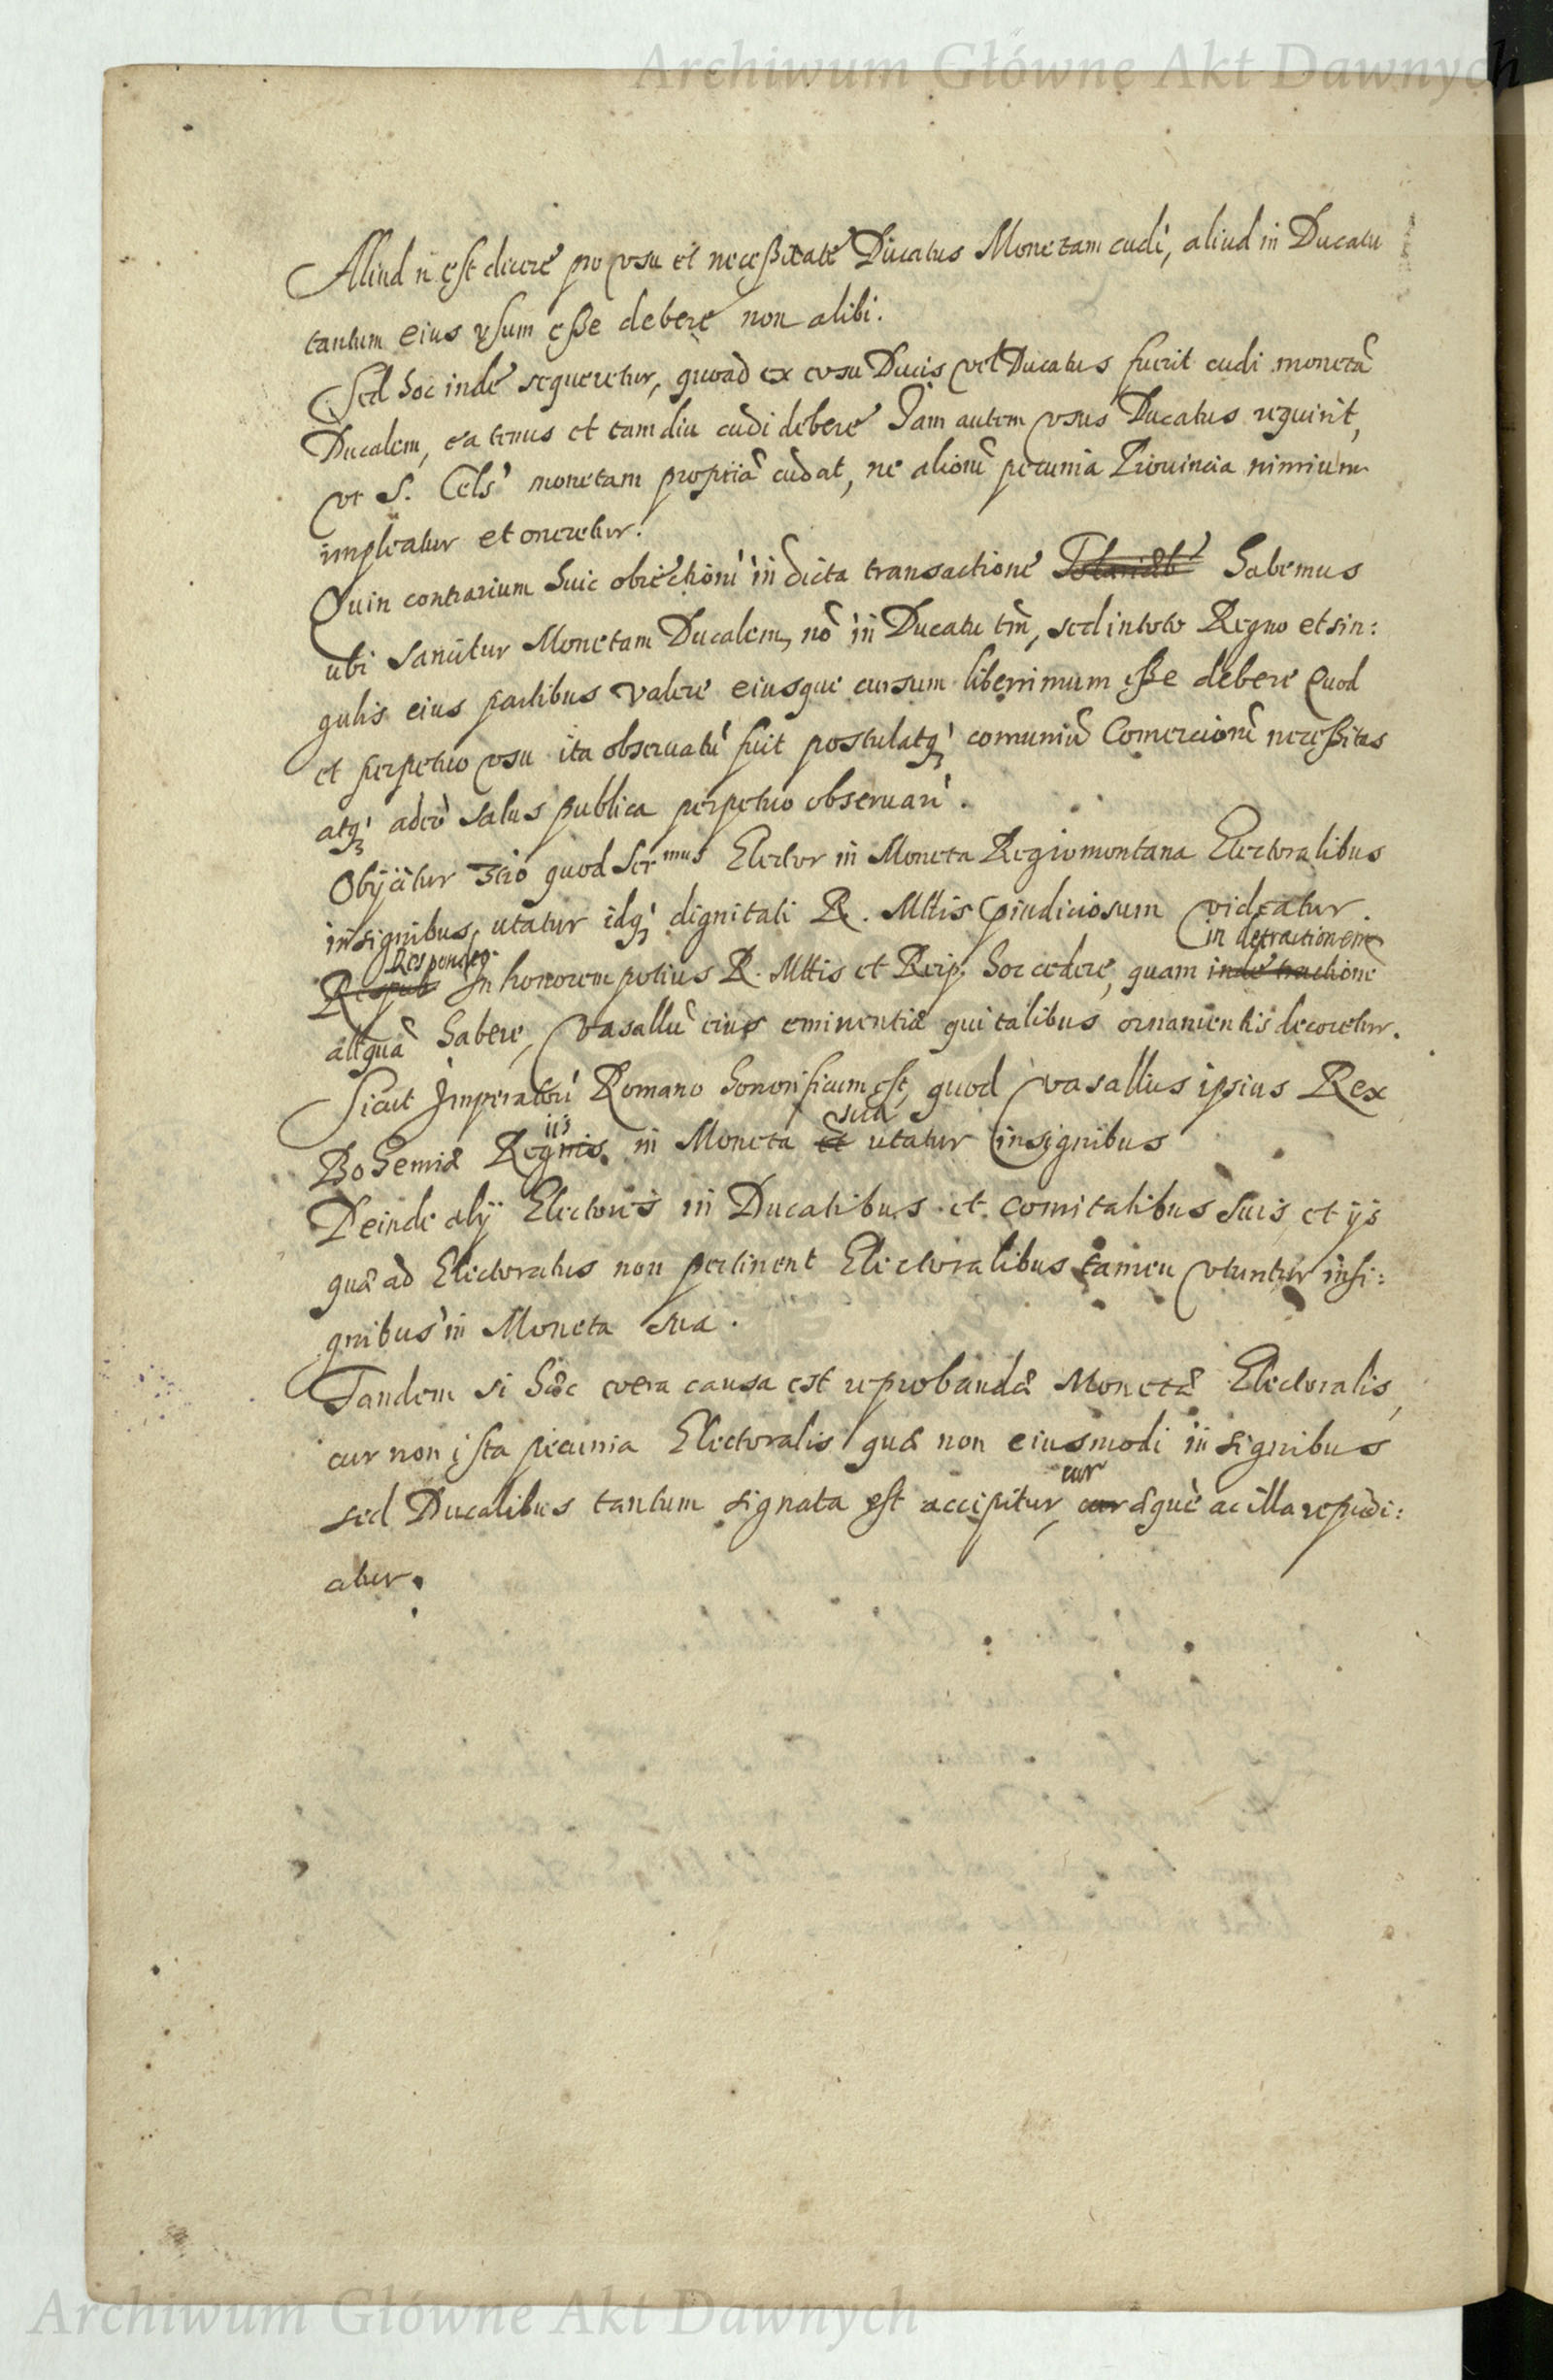 Archiwum Główne Akt Dawnych
Aliud n. est dicere pro vsu et neceßitate Ducatus Monetam cudi, aliud in Ducatu
tantum eius vsum eße debere non alibi.
Sed hoc inde sequeretur, quoad ex vsu Ducis vel Ducatus fuerit cudi monetã
Ducalem, ea tenus et tam diu cudi debere Iam autem vsus Ducatus requirit,
vt S. Cels' monetam propriã cudat, ne aliorũ pecunia Prouincia nimium
impleatur et oneretur.
Quin contrarium huic obiectioni in dicta transactione habemus
ubi sancitur Monetam Ducalem, nõ in Ducatu tm̃, sed in toto Regno et sin:
gulis eius partibus valere eiusque cursum liberrimum eße debere Quod
et perpetuo vsu ita obseruatũ fuit postulatq; comuniũ Comerciorũ neceßitas
atq; adeò salus publica perpetuo obseruari.
Obijcitur 3tio quod Ser.mus Elector in Moneta Regiomontana Electoralibus
insignibus utatur idq; dignitati R. Mttis piudiciosum videatur.
in detractionem
Respondeo.
Respub In honorem potius R. Mttis et Reip. hoc cedere, quam inde tractione
aliquã habere, vasallũ eius eminentiæ qui talibus ornamentis decoretur.
Sicut Imperatori Romano honorificum est, quod vasallus ipsius Rex
ijs sua
Bohemiæ Regnis in Moneta et utatur insignibus
Deinde alij Electores in Ducatibus et comitatibus suis et ijs
quæ ad Electoratus non pertinent Electoralibus tamen vtuntur insi:
gnibus in Moneta sua.
Tandem si hæc vera causa est reprobandæ Monetæ Electoralis,
cur non ista pecunia Electoralis quæ non eiusmodi insignibus
cur
sed Ducalibus tantum signata est accipitur, cur æquè ac illa repudi:
atur.
Archiwum Główne Akt Dawnych